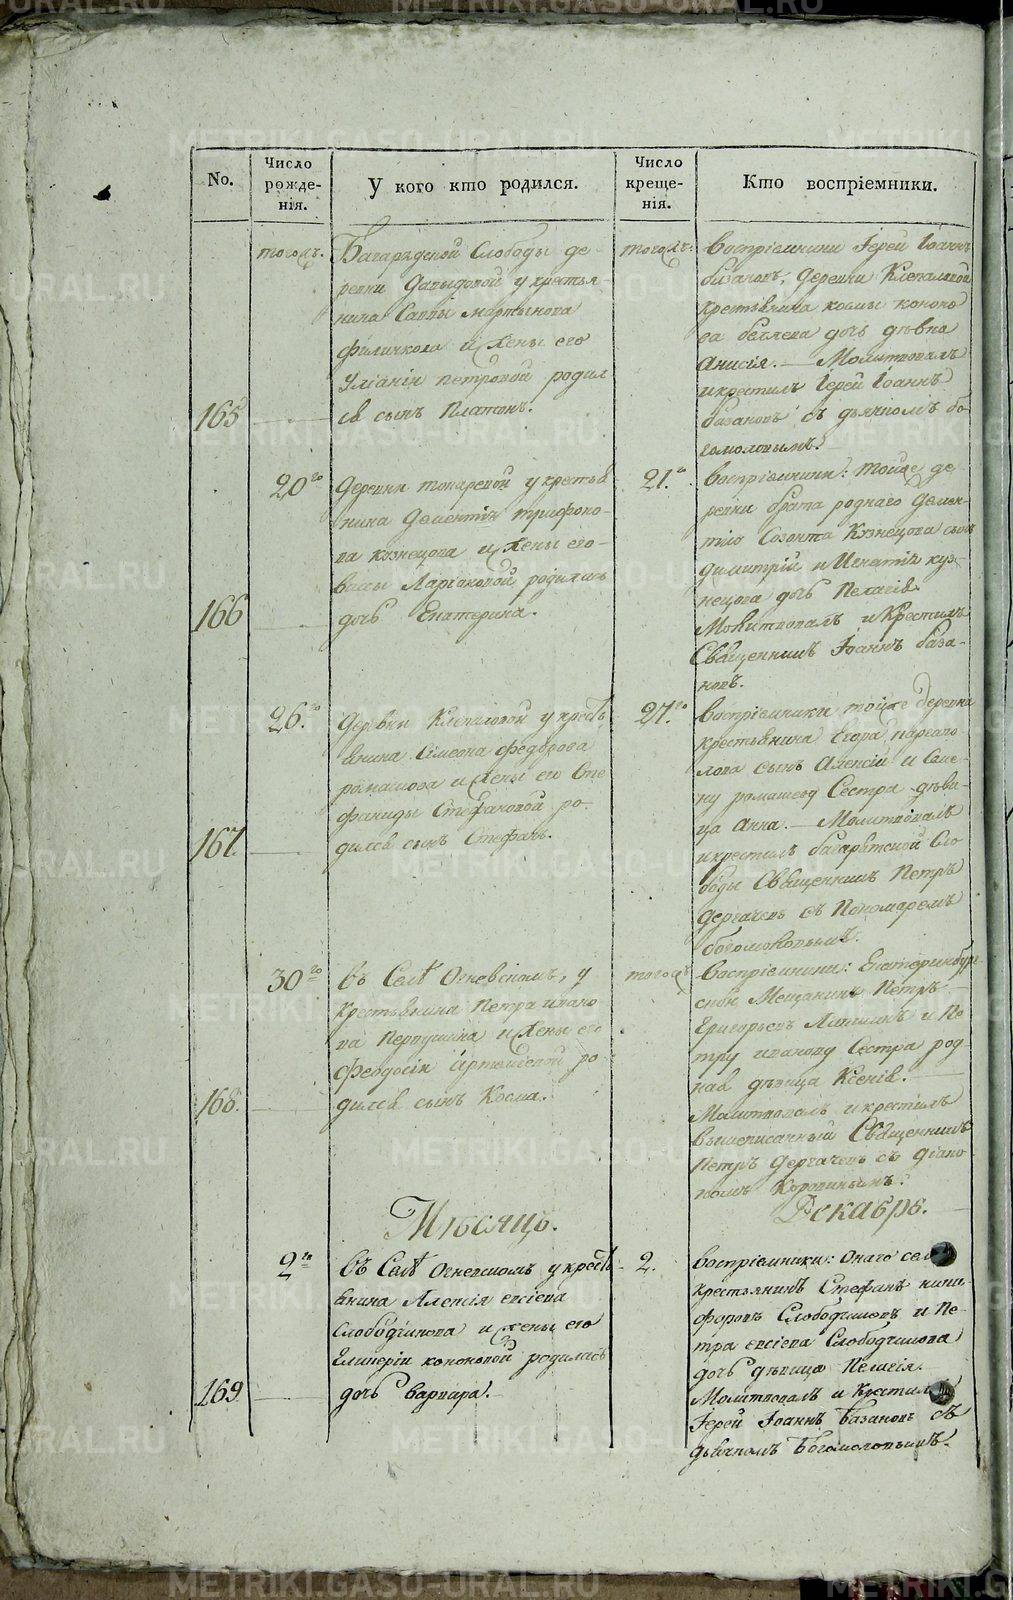 No.
Число рожде-нія.
У кого кто родился.
Число креще-нія.
Кто воспріемники.
165
тогожъ.
Багаряцкой Слободы де-
ревни Давыдовой у крестья-
нина Саввы Мартынова
и жены его
Уліаніи Петровой родил
ся сынъ Платонъ.
тогожъ:
Воспріемники Іерей Іоаннъ
Базановъ, деревни Клепаловой
крестьянина Космы Конано
ва дочь дѣвка
Анисія. — Молитвовалъ
и крестилъ Іерей Іоаннъ
Базановъ съ дьячкомъ Бо-
гомоловымъ.
166
20го
Деревни Токаревой у крестья
нина Дементія Трифоно-
ва Кузнецова и жены его
Вассы Ларіоновой родилась
дочь Екатерина.
21.го
Воспріемники: тойже де-
ревни брата роднаго Демен-
тія Созонта Кузнецова сынъ
Димитрій и Игнатія Куз-
нецова дочь Пелагія.
Молитвовалъ и Крестилъ
Священникъ Іоаннъ База-
новъ.
167.
26.го
Деревни Клепаловой у кресть
янина Симеона Федорова
Ромашова и жены его Сте
фаниды Стефановой ро-
дился сынъ Стефанъ.
27.го
Воспріемники тойже деревни
крестьянина Егора
сынъ Алексій и Семе-
ну Сестра дѣви-
ца Анна. — Молитвовалъ
и крестилъ Багаряцкой Сло
боды Священникъ Петръ
Дергачевъ съ Пономаремъ
Богомоловымъ.
168.
30го
Въ Селѣ Огневскомъ, у
Крестьянина Петра Ивано
ва Первушина и жены его
Феодосіи Артемьевой ро
дился сынъ Косма.
тогожъ
Воспріемники: Екатеринбург
ской Мещанинъ Петръ
Григорьевъ и Пе
тру Иванову Сестра род
ная дѣвица Ксенія.
Молитвовалъ и крестилъ
вышеписанный Священникъ
Петръ Дергачевъ съ Діако
номъ
Мѣсяцъ. Декабрь.
169
2го
Въ Селѣ Огневскомъ у кресть
янина Алексія Евсіева
Слободчикова и жены его
Гликеріи Кононовой родилась
дочь Варвара.
2.
Воспріемники: Онаго села
крестьянинъ Стефанъ Ники
форовъ Слободчиковъ и Пе-
тра Евсіева Слободчикова
дочь дѣвица Пелагія.
Молитвовалъ и Крестилъ
Іерей Іоаннъ Базановъ съ
дьячкомъ Богомоловымъ.
METRIKI.GASO-URAL.RU